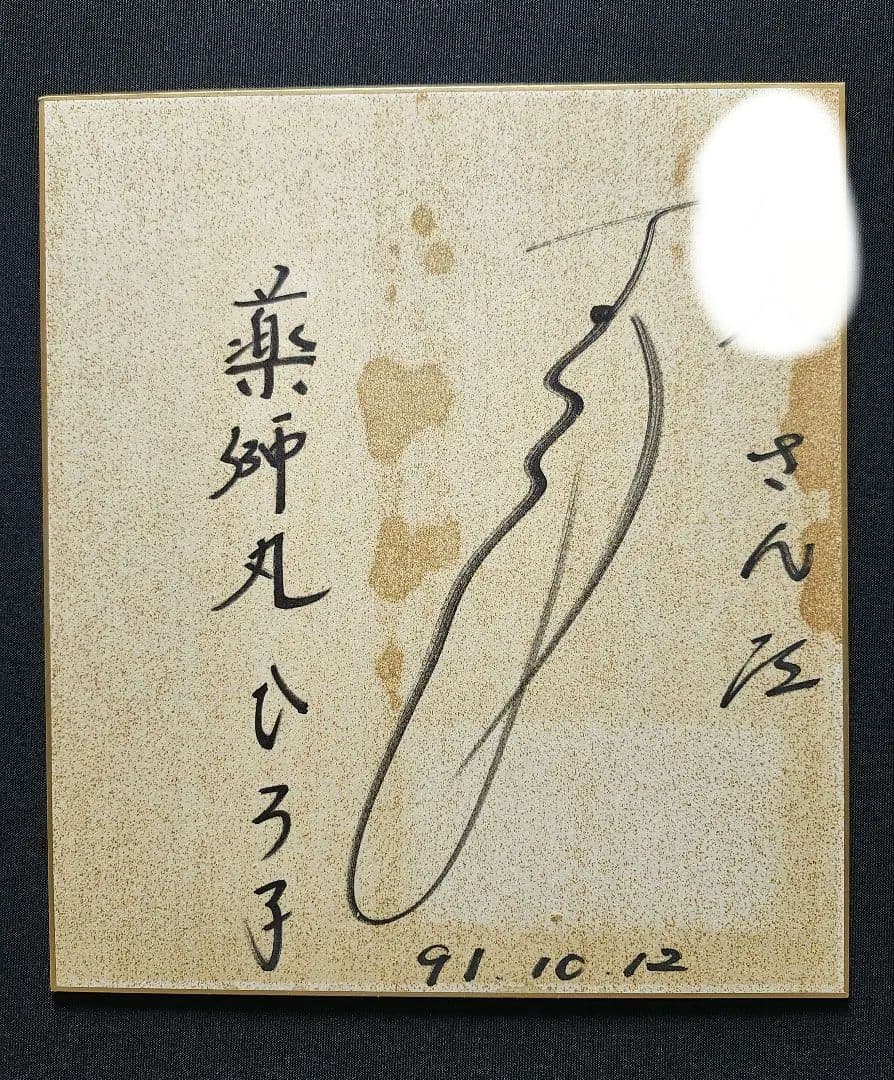 さん江
薬師丸ひろ子
91.10.12